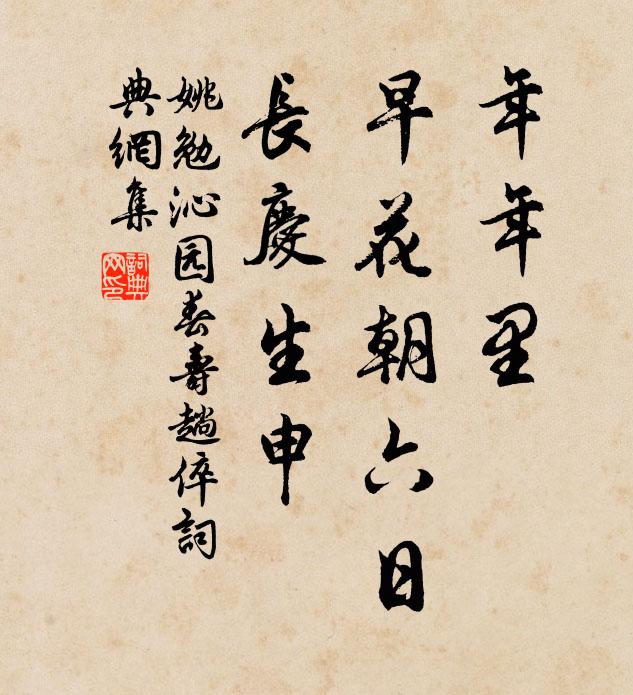 年年里
早花朝六日
長慶生申
姚勉沁园春壽趙倅詞
典網集
詞典網印